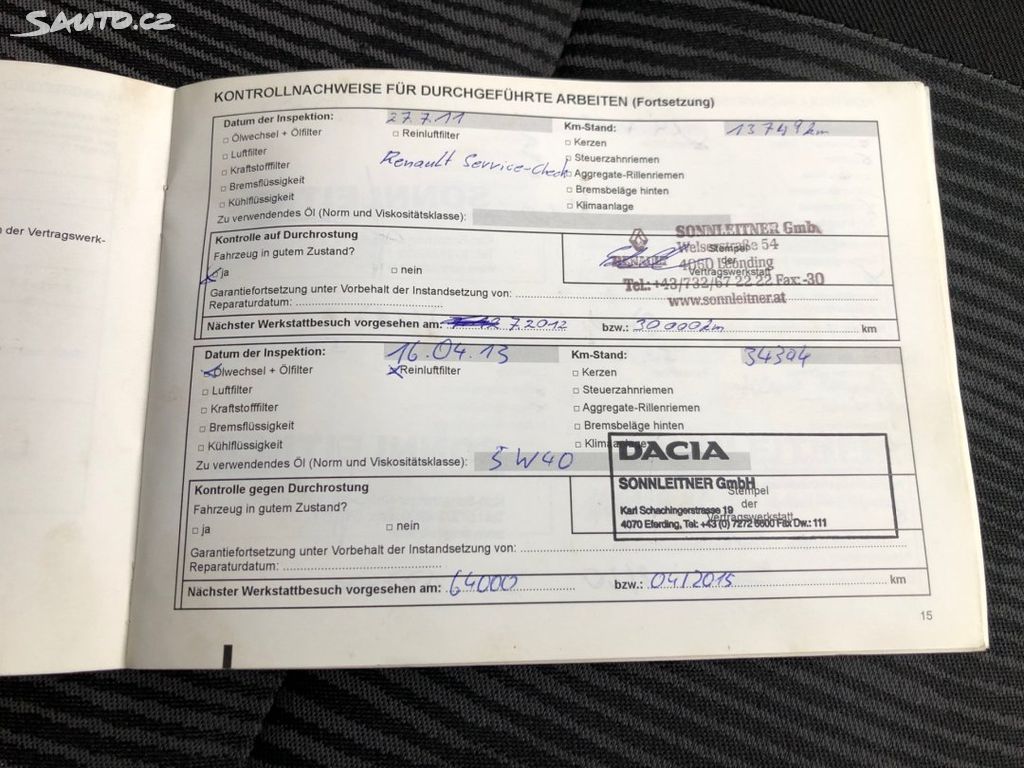 SAUTO.CZ
n der Vertragswerk-
KONTROLLNACHWEISE FÜR DURCHGEFÜHRTE ARBEITEN (Fortsetzung)
Datum der Inspektion: 27.7.11 Km-Stand: 13749km
□ Ölwechsel + Ölfilter □ Reinluftfilter □ Kerzen
□ Luftfilter □ Steuerzahnriemen
□ Kraftstofffilter Renault Service-Check □ Aggregate-Rillenriemen
□ Bremsflüssigkeit □ Bremsbeläge hinten
□ Kühlflüssigkeit □ Klimaanlage
Zu verwendetes Öl (Norm und Viskositätsklasse):
Kontrolle auf Durchrostung
Fahrzeug in gutem Zustand?
□ ja □ nein
Stempel
der
Vertragswerkstatt
SONNLEITNER GmbH
Welserstraße 54
RENAULT 4060 Leonding
Tel.: +43/732/67 22 22 Fax: -30
www.sonnleitner.at
Garantiefortsetzung unter Vorbehalt der Instandsetzung von:
Reparaturdatum:
Nächster Werkstattbesuch vorgesehen am: 7.2012 bzw.: 30000km km
Datum der Inspektion: 16.04.13 Km-Stand: 34394
□ Ölwechsel + Ölfilter □ Reinluftfilter □ Kerzen
□ Luftfilter □ Steuerzahnriemen
□ Kraftstofffilter □ Aggregate-Rillenriemen
□ Bremsflüssigkeit □ Bremsbeläge hinten
□ Kühlflüssigkeit □ Klimaanlage
Zu verwendetes Öl (Norm und Viskositätsklasse): 5W40
Kontrolle gegen Durchrostung
Fahrzeug in gutem Zustand?
□ ja □ nein
Stempel
der
Vertragswerkstatt
DACIA
SONNLEITNER GmbH
Karl Schachingerstrasse 19
4070 Eferding, Tel.: +43 (0) 7272 6600 Fax Dw.: 111
Garantiefortsetzung unter Vorbehalt der Instandsetzung von:
Reparaturdatum:
Nächster Werkstattbesuch vorgesehen am: 64000 bzw.: 04/2015 km
15